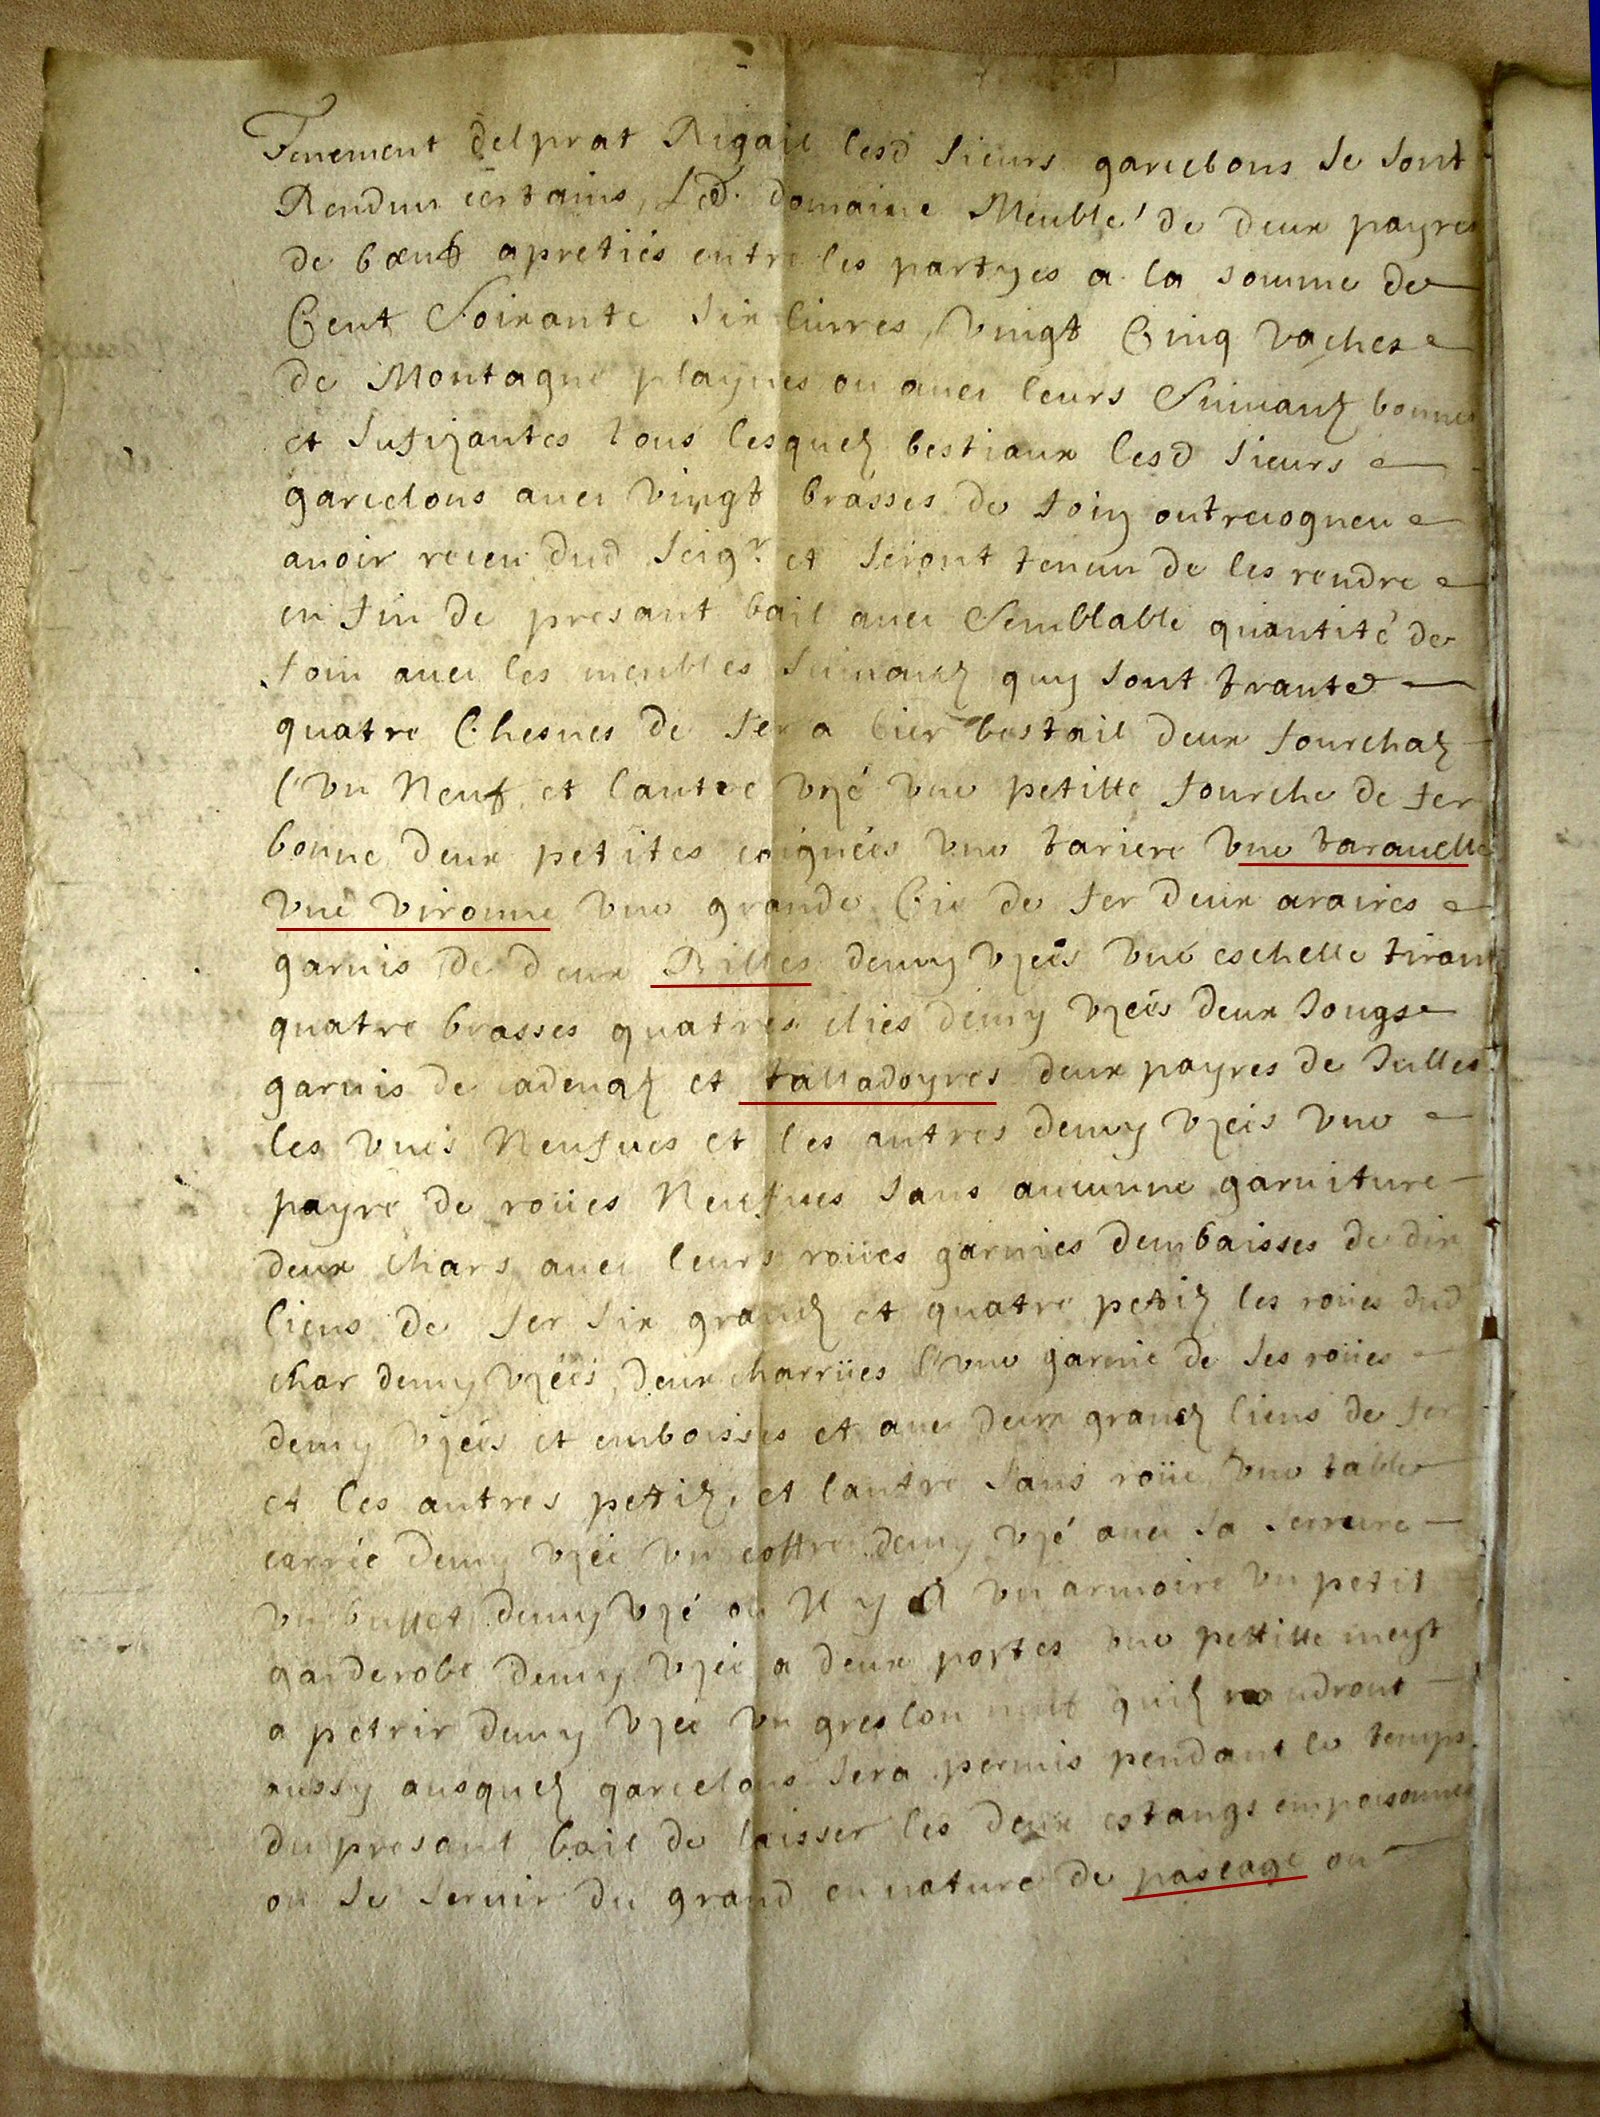 Tenement delprat Rigail lesd sieurs garcelons se sont
Rendus certains, Led. domaine Meublé de deux payres
de bœufs apretiés entre les partyes a la somme de
Cent Soixante six livres, vingt Cinq vaches
de Montagne playnes ou avec leurs Suivantz bonnes
et sufizantes tous lesquelz bestiaux lesd sieurs
garcelons avec vingt brasses de foin ont recogneu
avoir receu dud seigr et seront tenus de les rendre
en fin de presant bail avec Semblable quantité de
foin avec les meubles suivantz quy sont trante
quatre Chesnes de fer a lier bestail deux fourchatz
l'un Neuf et lautre uzé une petitte fourche de fer
bonne deux petites coignées une tariere une taravelle
une vironne une grande Cie de fer deux araires
garnis de deux Rilles demy uzées une eschelle tirant
quatre brasses quatres clies demy uzées deux Jougs
garnis de cadenatz et talladoyres deux payres de Julles
les unes Neufves et les autres demy uzées une
payre de roües Neufves sans aucunne garniture
deux chars avec leurs roües garnies dembaisses de dix
liens de fer six grandz et quatre petitz les roües dud
char demy uzées, deux charrües l'une garnie de ses roües
demy uzées et emboisses et avec deux grandz liens de fer
et les autres petitz, et lautre sans roüe une table
carrée demy uzée un coffre demy uzé avec sa serrure
un buffet demy uzé ou Il y A un armoire un petit
garderobe demy uzée a deux portes une pettitte meyt
a petrir demy uzée un greslou neuf quilz randront
aussy ausquelz garcelons sera permis pendant le temps
du presant bail de laisser les deux estangs empoisonnés
ou se servir du grand en nature de pascage ou